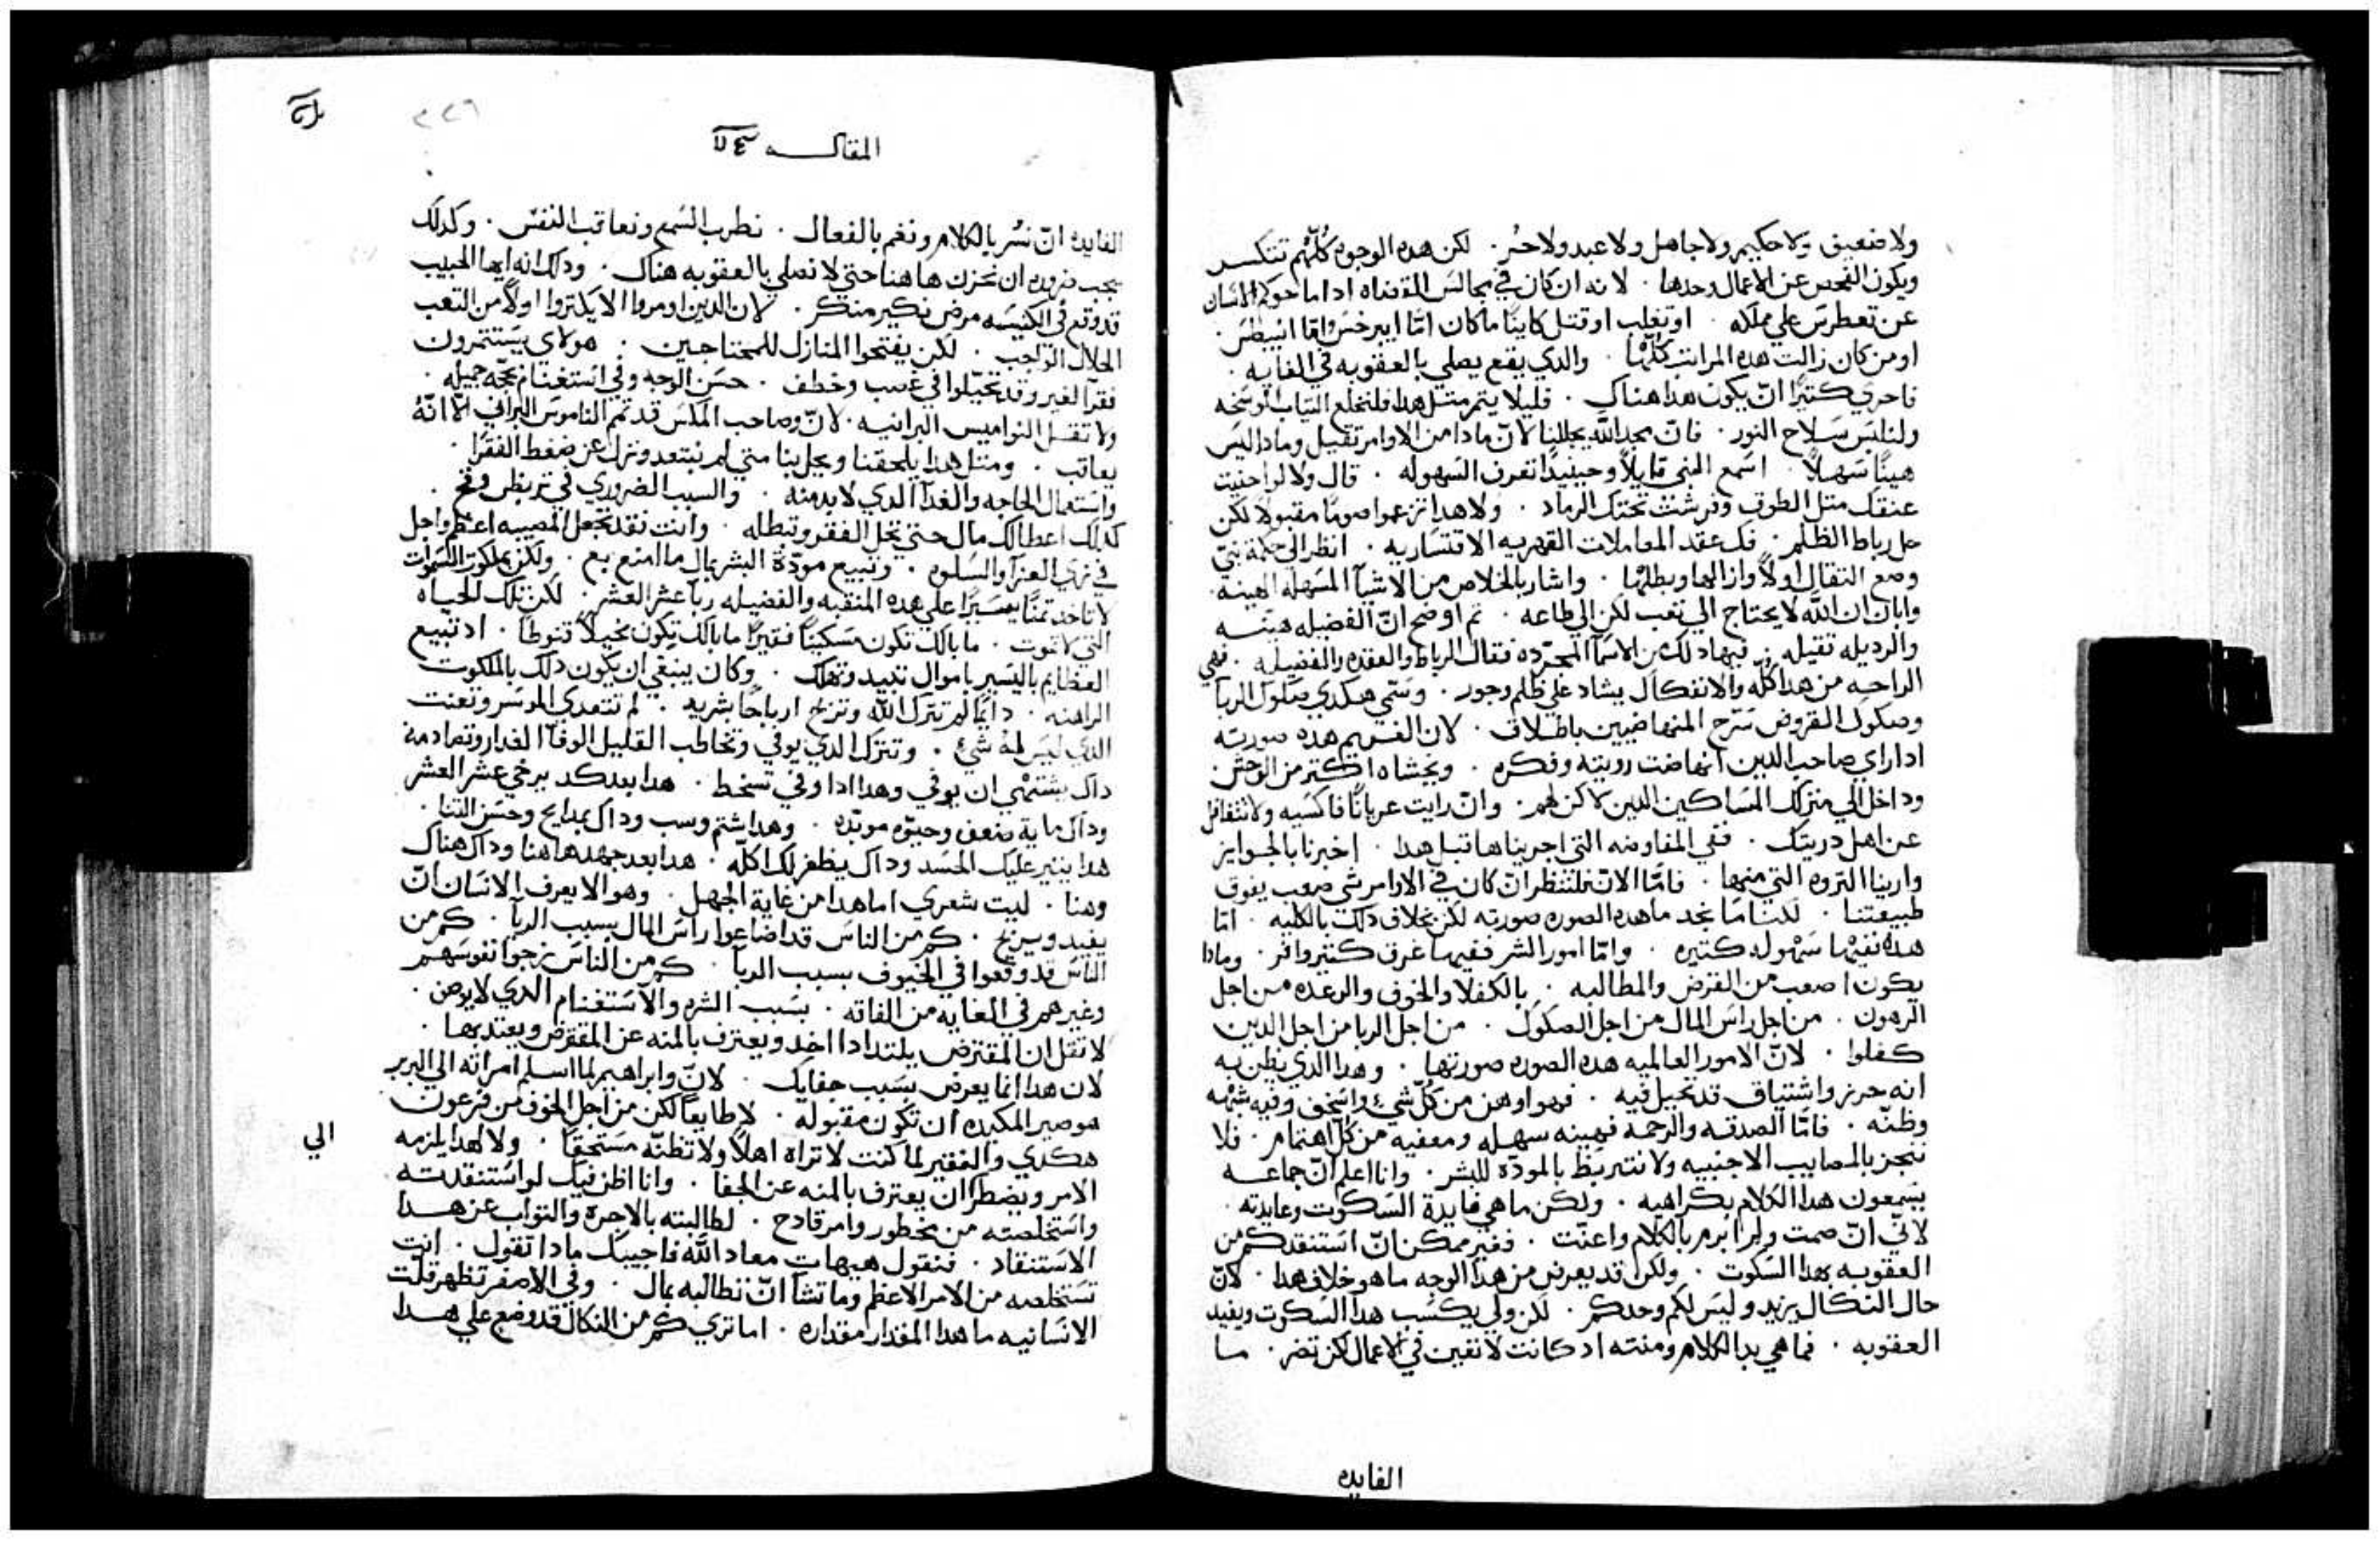 ولا ضعيف ولا حكيم ولا جاهل ولا عبد ولا حُر. لكن هده الوجوه كُلّهُم تنكسر
ويكون الفحص عن الاعمال وحدها. لانه ان كان في مجالس القضاه اداما حوكم الانسان
عن تغطرس علي مملكه. او تغلب او قتل كاينًا ما كان امّا ايبرخس وامّا انبطس.
او من كان زالت هده المراتب كُلّها. والدي يقع يصلي بالعقوبه في الغايه.
فاحري كتيرًا انّ يكون هدا هناك. فليلا يتم متل هدا فلنخلع التياب الوسخه
ولنلبس سلاح النور. فانّ مجد اللّه يجللنا لانّ مادا من الاوامر تقيل ومادا ليس
هينًا سهلاً. اسمع النبي قايلاً وحينيدًا تعرف السهوله. قال ولا لو احنيت
عنقك متل الطوق وفرشت تحتك الرماد. ولا هدا تزعموا صومًا مقبولاً لكن
حل رباط الظلم. فك عقد المعاملات القهريه الاقتساريه. انظر الي حكمة نبيّ
وضع التقال اولاً وازالها وبطلها. واشار بالخلاص من الاشيآ السهله الهينه
وابان ان اللّه لا يحتاج الي تعب لكن الي طاعه. تم اوضح انّ الفضيله هينه
والرديله تقيله. فبهاد لك من الاسمآ المجرّده فقال الرباط والعقده والفضيله. فهي
الراحه من هدا كلّه والانفكاك يشاد علي ظلم وجور. وسمّي هكدي صكوك الربآ
وصكوك القروض سَرّح المنهاضيين باطلاق. لان الغريم هده صورته
ادا راي صاحب الدين انهاضت رويته وفكره. ويخشاه اكتر من الوحش.
وداخل الي منزلك المساكين الدين لا كن لهم. وانّ رايت عريانًا فاكسيه ولا تتغافل
عن اهل دريتك. ففي المفاوضه التي اجريناها قبل هدا. اخبرنا بالجوايز
وارينا التروه التي منها. فامّا الان فلننظر انّ كان في الاوامر شي صعب يفوق
طبيعتنا. لكننا ما نجد ما هده الصوره صورته لكن بخلاف دلك بالكليه. امّا
هده ففيها سهوله كتيره. وامّا امور الشر ففيها عرق كتير وافر. ومادا
يكون اصعب من القرض والمطالبه. بالكفلا والخوف والرعده من اجل
الرهون. من اجل راس المال من اجل الصكوك. من اجل الربا من اجل الدين
كفلوا. لانّ الامور العالميه هده الصوره صورتها. وهدا الدي يظن به
انه حرز واشتياق قد تحيل فيه. فهو اوهن من كلّ شيءٍ واسخف وفيه شبهه
وظنّه. فامّا الصدقه والرحمه فهينه سهله ومعفيه من كلّ اهتمام. فلا
نتجر بالمصايب الاجنبيه ولا نتربّط بالمودّه للبشر. وانا اعلم انّ جماعه
يسمعون هدا الكلام بكراهيه. ولكن ما هي فايدة السكوت وعايدته.
لانّي انّ صمت ولم ابرم بالكلام واعنّت. فغير ممكن انّ استنقدكم من
العقوبه بهدا السكوت. ولكن قد يعرض من هدا الوجه ما هو خلاف هدا. لانّ
حال النكال يزيد وليس لكم وحدكم. لكن ولي يكسب هدا السكوت ويفيد
العقوبه. فما هي يد الكلام ومنته اد كانت لا تعين في الاعمال لكن تضر. ما
الفايده
المقاله
الفايده انّ نسُر بالكلام ونغم بالفعال. نطرب السمع ونعاقب النفس. وكدلك
يجب ضروره ان نحزن ها هنا حتي لا نصلي بالعقوبه هناك. ودلك انه ايها الحبيب
قد وقع في الكنيسه مرض نكير منكر. لان الدين اومروا الا يكنزوا اولاً من التعب
الحلال الواجب. لكن يفتحوا المنازل للمحتاجين. هولاي يستتمرون
فقرآ الغير وقد تحيّلوا في غصب وخطف. حسن الوجه وفي استغنام بحجّه جميله.
ولا تقل النواميس البرانيه. لانّ وصاحب المكس قد تمم الناموس البراني الّا انّهُ
يعاقب. ومتل هدا يلحقنا ويحل بنا متي لم نبتعد ونزل عن ضغط الفقرا.
واستعمال الحاجه والغدآ الدي لا بد منه. والسبب الضروري في تربظر وقح.
كدلك اعطالك مال حتي تحل الفقر وتبطله. وانت نقد تجعل المصيبه اعظم واجل
في زي العزآ والسلوه. وتبيع مودّة البشر بمال ما امنع بع. ولكن بملكوت السموات
لا تاخد تمنًا يسيرًا علي هده المنقبه والفضيله ربا عشر العشر. لكن تلك الحياه
التي لا تموت. ما بالك تكون مسكينًا فقيرًا ما بالك تكون بخيلاً قنوطًا. اد تبيع
العظايم باليسير باموال تبيد وتهلك. وكان ينبغي ان يكون دلك بالملكوت
الراهنه. دايمًا لم تترك اللّه وتربح ارباحًا بشريه. لم تتعدي الموسر وتعنت
الدي ليس له شيءٌ. وتترك الدي يوفي وتخاطب القليل الوفآ الغدار وتصادمه
داك يشتهي ان يوفي وهدا ادا وفي تسخط. هدا بعد كد يرخي عشر العشر
وداك مايه ضعف وحيوّه موبّده. وهدا شتم وسب وداك بمدايح وحسن التنا.
هدا يتير عليك الحسد وداك يظفر لك اكلّه. هدا بعد جهد ها هنا وداك هناك
وهنا. ليت شعري اما هدا من غاية الجهل. وهو الا يعرف الانسان انّ
يفيد ويربح. كم من الناس قد اضاعوا راس المال بسبب الربآ. كم من
الناس قد وقعوا في الحتوف بسبب الربآ. كم من الناس زجوا نفوسهم
وغيرهم في الغايه من الفاقه. بسبب الشره والاستغنام الدي لا يوصف.
لا تقل ان المقترض يلتد ادا اخد ويعترف بالمنه عن المقترض ويعتد بها.
لان هدا انما يعرض بسبب جفايك. لانّ وابراهيم لما اسلم امراته الي البربر
هو صير المكيده ان تكون مقبوله. لا طايعًا لكن من اجل الخوف من فرعون
هكدي والفقير لما كنت لا تراه اهلاً ولا تظنّه مستحقًا. ولا لهدا يلزمه
الامر ويضطر ان يعترف بالمنه عن الجفا. وانا اظن فيك لو استنقدته
واستخلصته من محظور وامر قادح. لطالبته بالاجرة والتواب عن هدا
الاستنقاد. فتقول هيهات معاد اللّه فاجيبك مادا تقول. انت
تستخلصه من الامر الاعظم وما تشا انّ تطالبه بمال. وفي الاصغر تظهر قلّت
الانسانيه ما هدا المقدار مقداره. اما تري كم من النكال قد وضع علي هدا
الي